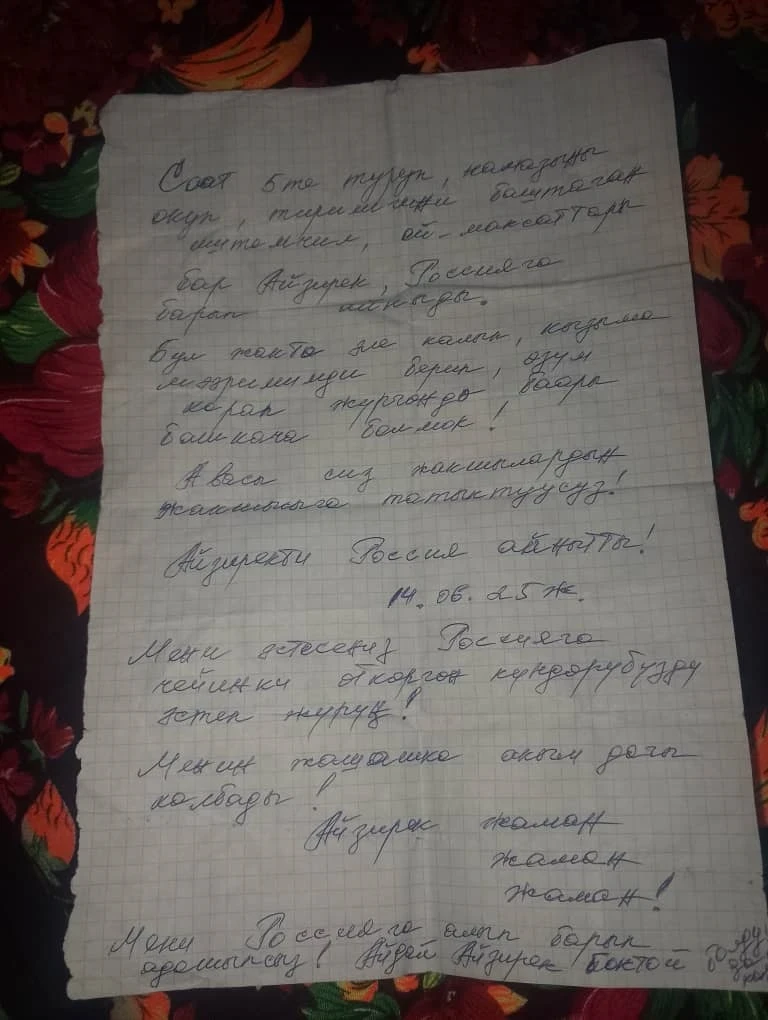 Саат 5те туруп, намазыңы
окуп, тиричиликни баштаган
иштемчил, ой-максаттары
бар Айзирек, Россияга
барып айныды.
Бул жакта эле калып, кызыма
мээримимди берип, өзүм
карап жүргөндө баары
башкача болмок!
Авасы сиз жакшылардын
жакшысыга татыктуусуз!
Айзиректи Россия айнытты!
14.06.25ж.
Мени эстесеңиз Россияга
чейинки өткөргөн күндөрүбүздү
эстеп жүрүң!
Менин жашашка акым дагы
калбады!
Айзирек жаман
жаман
жаман!
Мени Россияга алып барып
адашыпсыз! Айдай Айзирек боктой
болду